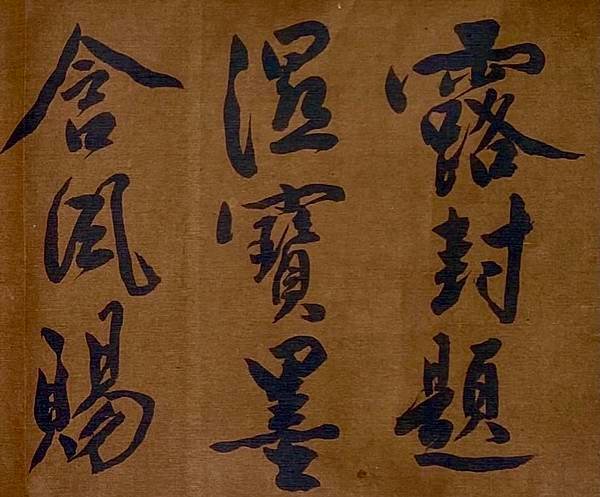 露封題
濕寶墨
含風賜